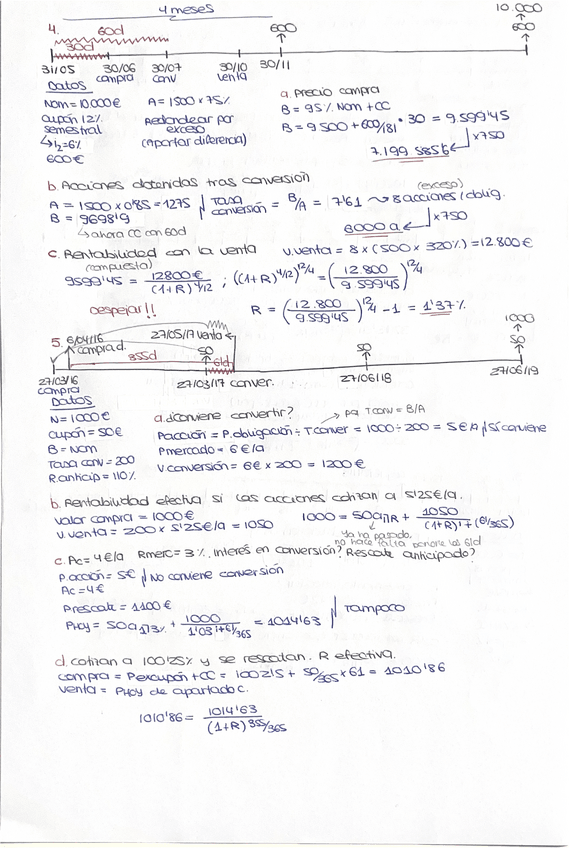 4 meses
4.
60d
30d
600
10.000
600
31/05
30/06
compra
30/07
conv
30/10
venta
30/11
Datos
Nom = 10.000€
Cupón 12%
semestral
↳ i₂=6%
600€
A = 1500 x 75%
Redondear por
exceso
(Aportar diferencia)
a. Precio compra
B = 95% Nom + CC
B = 9500 + 600/181 · 30 = 9.599'45
x750
7.199.585'6
b. Acciones obtenidas tras conversión
A = 1500 x 0'85 = 1275
B = 9698'9
↳ ahora CC con 60d
Tasa conversión = B/A = 7'61 → 8 acciones/oblig.
(exceso)
x750
6000 a
c. Rentabilidad con la venta
(compuesta)
V.venta = 8 x (500 x 320%) = 12.800€
9599'45 = 12800€/(1+R)^4/12 ; ((1+R)^4/12)^12/4 = (12.800/9.599'45)^12/4
Despejar!!
R = (12.800/9.599'45)^12/4 - 1 = 1'37%
5.
6/04/16
compra d.
27/05/17 venta
355d
50
61d
50
1000
50
27/03/16
compra
27/03/17 conver.
27/06/18
27/06/19
Datos
N = 1000€
Cupón = 50€
B = Nom
Tasa conv = 200
R.anticip = 110%
a. ¿Conviene convertir?
→ pq Tconv = B/A
Pacción = P.obligación ÷ Tconver = 1000 ÷ 200 = 5€/A | Sí conviene
Pmercado = 6€/a
V.conversión = 6€ x 200 = 1200€
b. Rentabilidad efectiva si las acciones cotizan a 5'25€/a.
Valor compra = 1000€
V.venta = 200 x 5'25€/a = 1050
1000 = 50a1⌉R + 1050/(1+R)^1+(61/365)
Ya ha pasado,
no hace falta ponerle los 61d
c. Ac = 4€/a Rmerc = 3%. Interés en conversión? Rescate anticipado?
P.acción = 5€
Ac = 4€
No conviene conversión
Prescate = 1100€
PHoy = 50a1⌉3% + 1000/1'03^1+61/365 = 1014'63
Tampoco
d. cotizan a 100'25% y se rescatan. R efectiva.
compra = Pexcupón + CC = 1002'5 + 50/365 x 61 = 1010'86
venta = PHoy de apartado c.
1010'86 = 1014'63/(1+R)^355/365